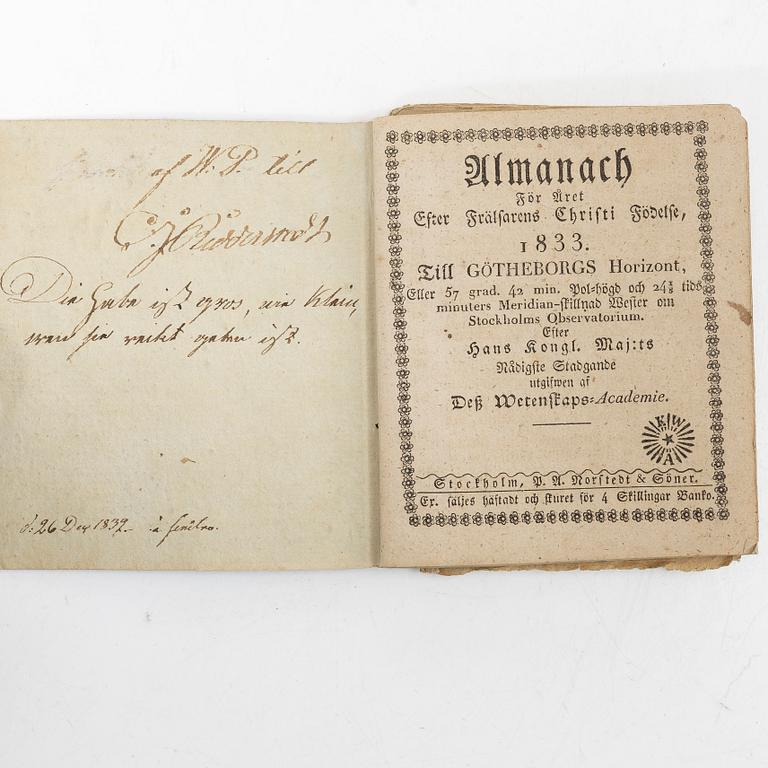 af W. P. till
Die gabe ist gros, wie Klein,
wen sie geben ist.
d: 26 Dec 1832
Almanach
För Året
Efter Frälsarens Christi Födelse,
1833.
Till GÖTHEBORGS Horizont,
Eller 57 grad. 42 min. Pol-högd och 24¾ tids
minuters Meridian-skillnad Wester om
Stockholms Observatorium.
Efter
Hans Kongl. Maj:ts
Nådigste Stadgande
utgifwen af
Deß Wetenskaps-Academie.
K W A
Stockholm, P. A. Norstedt & Söner.
Ex. säljes häftadt och skuret för 4 Skillingar Banko.